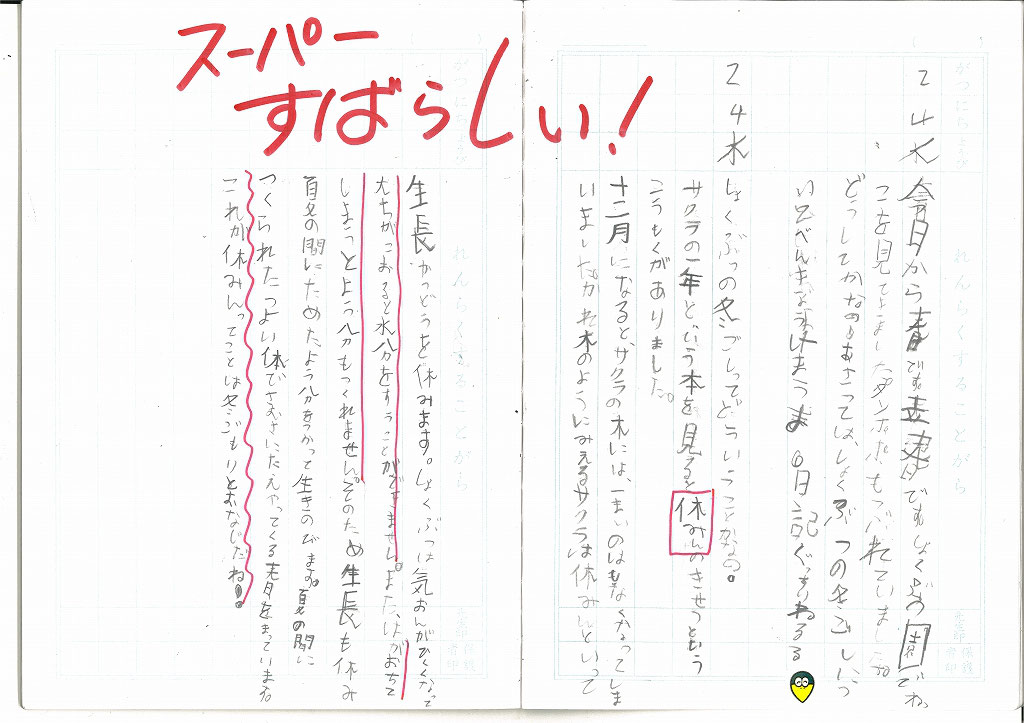 スーパー
すばらしい!
2 4水
今日から春です立春です
タンポポもつぶれていました
どうしてかな しょくぶつの冬ごしって
日記
2 4水
しょくぶつの冬ごしってどういうことかな
サクラの一年という本を見ると休みんのきせつという
こうもくがありました。
十二月になると、サクラの木には、一まいのはもなくなってしま
いました かれ木のようにみえるサクラは休みんといって
生長かつどうを休みます。しょくぶつは気おんがひくくなって
こおると水分をすうことができません。また、はがおちて
しまうとよう分もつくれません。そのため生長も休み
夏の間にためたよう分をつかって生きのびます。夏の間に
つくられたつよい休でさむさにたえやってくる春をまっています
これが休みんってことは冬ごもりとおなじだね。
れんらくすることがら
れんらくすることがら